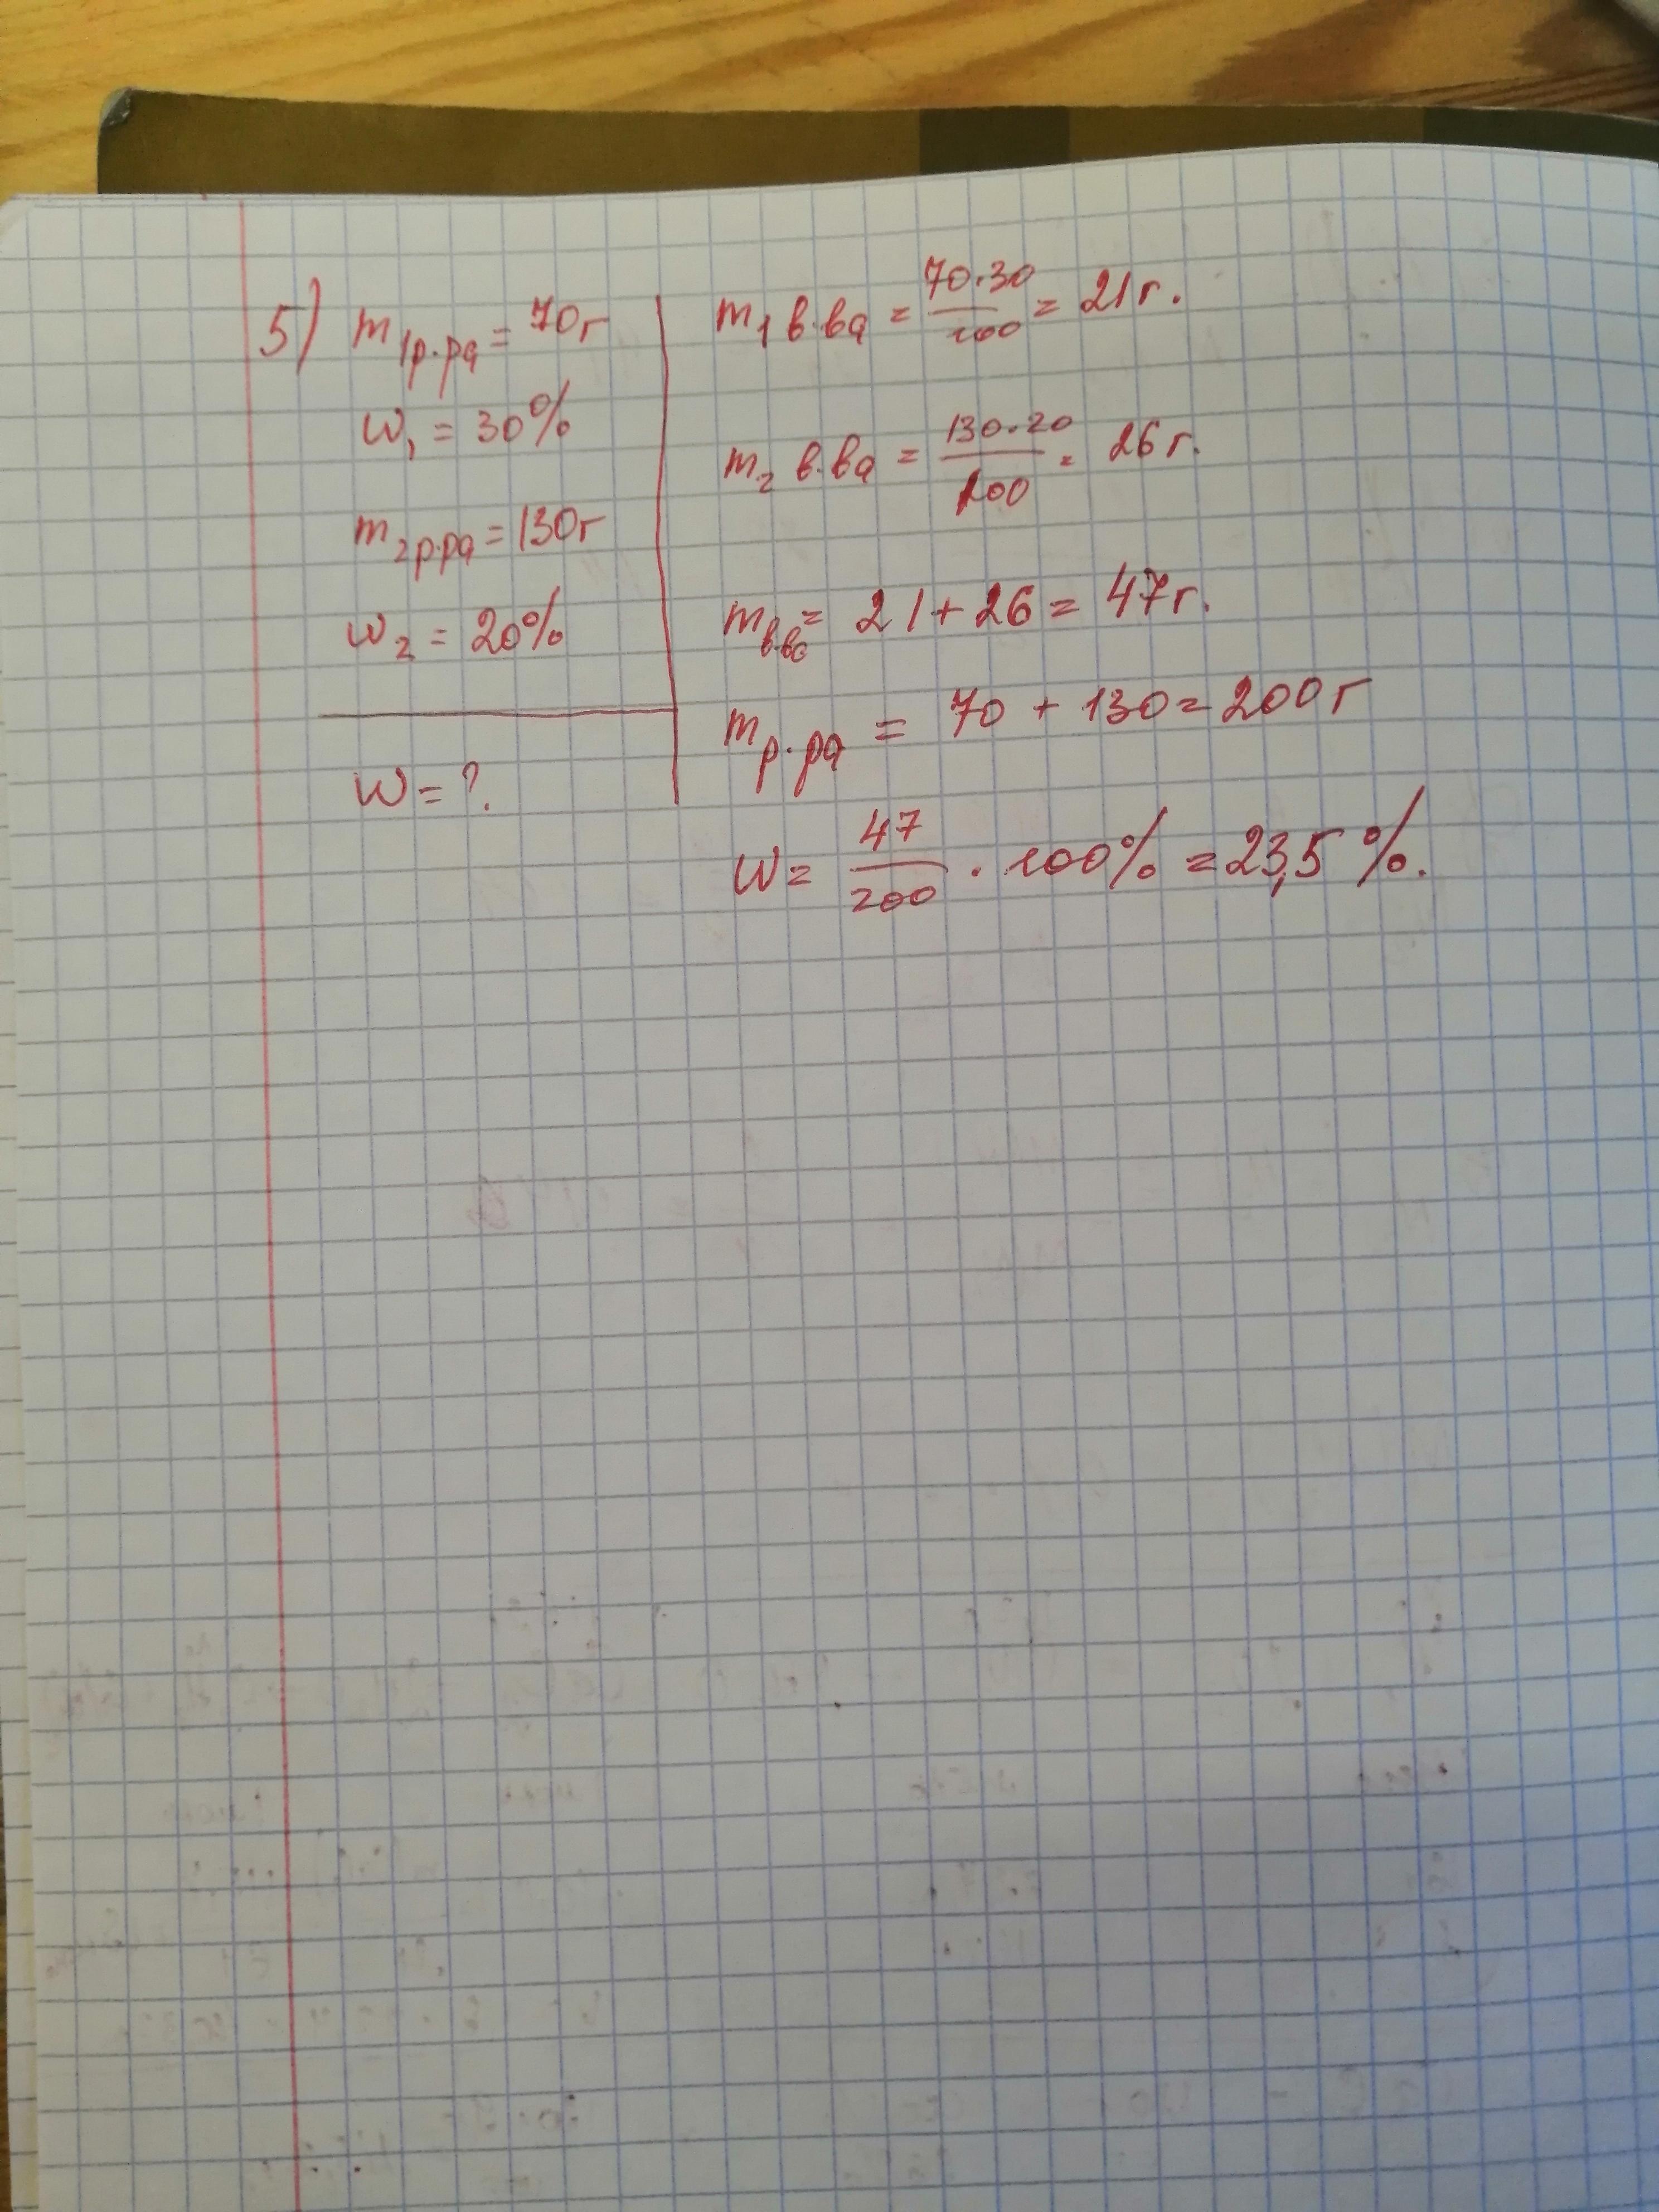 5) m1р.ра = 70г
w1 = 30%
m2р.ра = 130г
w2 = 20%
w = ?
m1 в.ва = 70·30/100 = 21г.
m2 в.ва = 130·20/100 = 26г.
mв.ва = 21 + 26 = 47г.
mр.ра = 70 + 130 = 200г
w = 47/200 · 100% = 23,5 %.